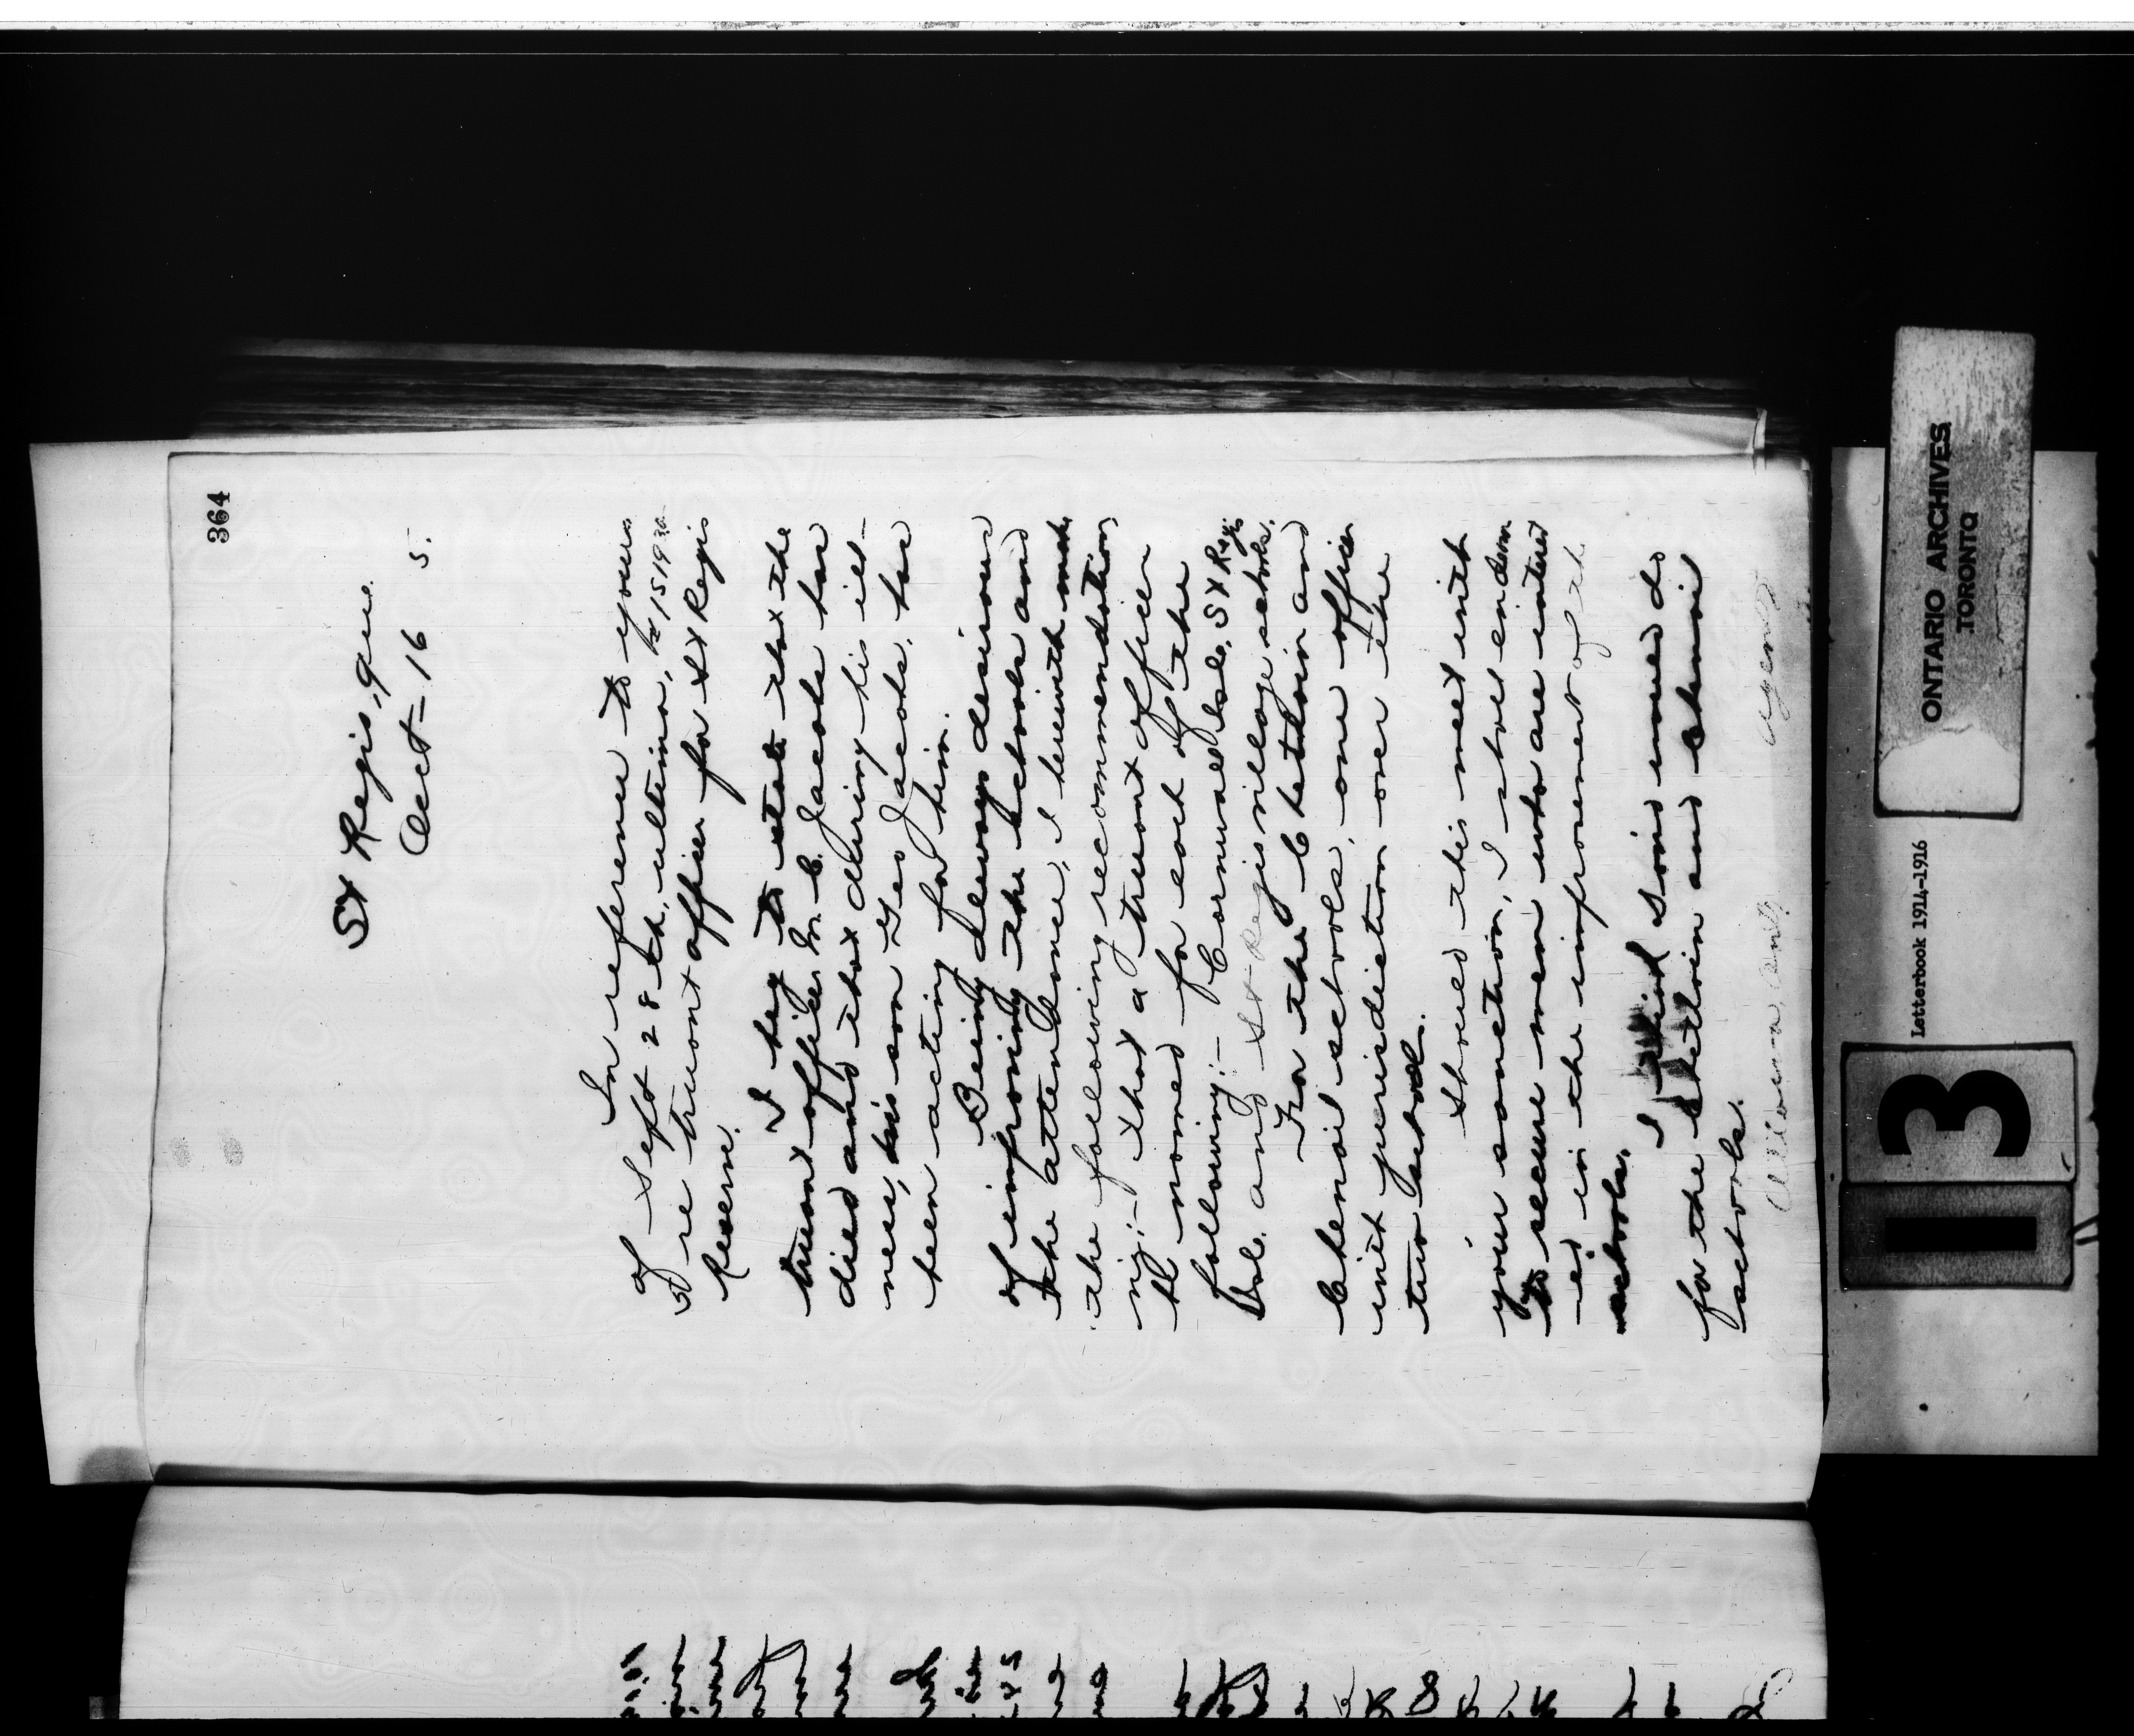 364
St Regis, Que.
Oct - 16 5.
In reference to yours
of Sept 28th, ultimo,
re truant officer for St Regis
Reserve.
I beg to state that the
truant officer M. C. Jacobs has
died and that during his ill-
ness, his son Geo Jacobs, has
been acting for him.
Being always desirous
of improving the schools and
the attendance, I herewith make
the following recommendation
viz:- that a truant officer
be named for each of the
following:- Cornwall Isle, St Regis
Isle, and St Regis village schools.
For the Chetlain and
Chenail schools, one officer
with jurisdiction over the
two schools.
Should this meet with
your sanction, I shall endeavor
to secure men who are interest
-ed in the improvement of the
schools.
I find some need do
for the Chetlain and Chenail
schools.
Agent
ONTARIO ARCHIVES
TORONTO
Letterbook 1914-1916
13